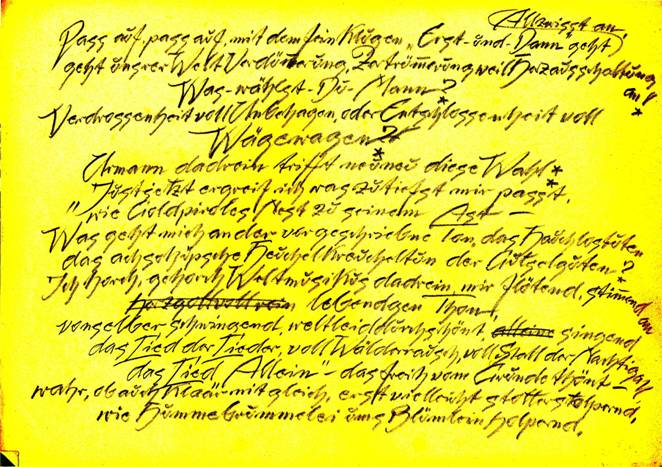 Allzwisst an.
Pass auf, pass auf, mit dem fein klugen „Erst-und-Dann" geht
geht unsrer Welt Verdüsterung, Zertrümerung weil Herzausschaltung an*
Was-wählst-Du-Mann?*
Verdrossenheit voll Unbehagen, oder Entschlossenheit voll
Wägewagen?*
Urmann dadrein trifft neuneu diese Wahl*
„Justjetzt ergreif ich was zutiefst mir passt,
wie Goldpiroles Nest zu seinem Ast —
Was geht mich an der vorgeschriebne Ton, das
das achsohypsche der
Ich horch, gehorch Weltmusikus dadrein, mir flötend, stimmend an
lebendgen Thon,
vonselber schwingend, weltleiddurchschönt, alleine singend
das Lied der Lieder, voll Wälderrausch, voll Schall der Nachtigall
das Lied Allein — das frei vom Grunde thönt —
wahr, ob auch mit gleich, erst vielleicht stotterstolpernd,
wie Hummebrummelei ums Blümlein holpernd.